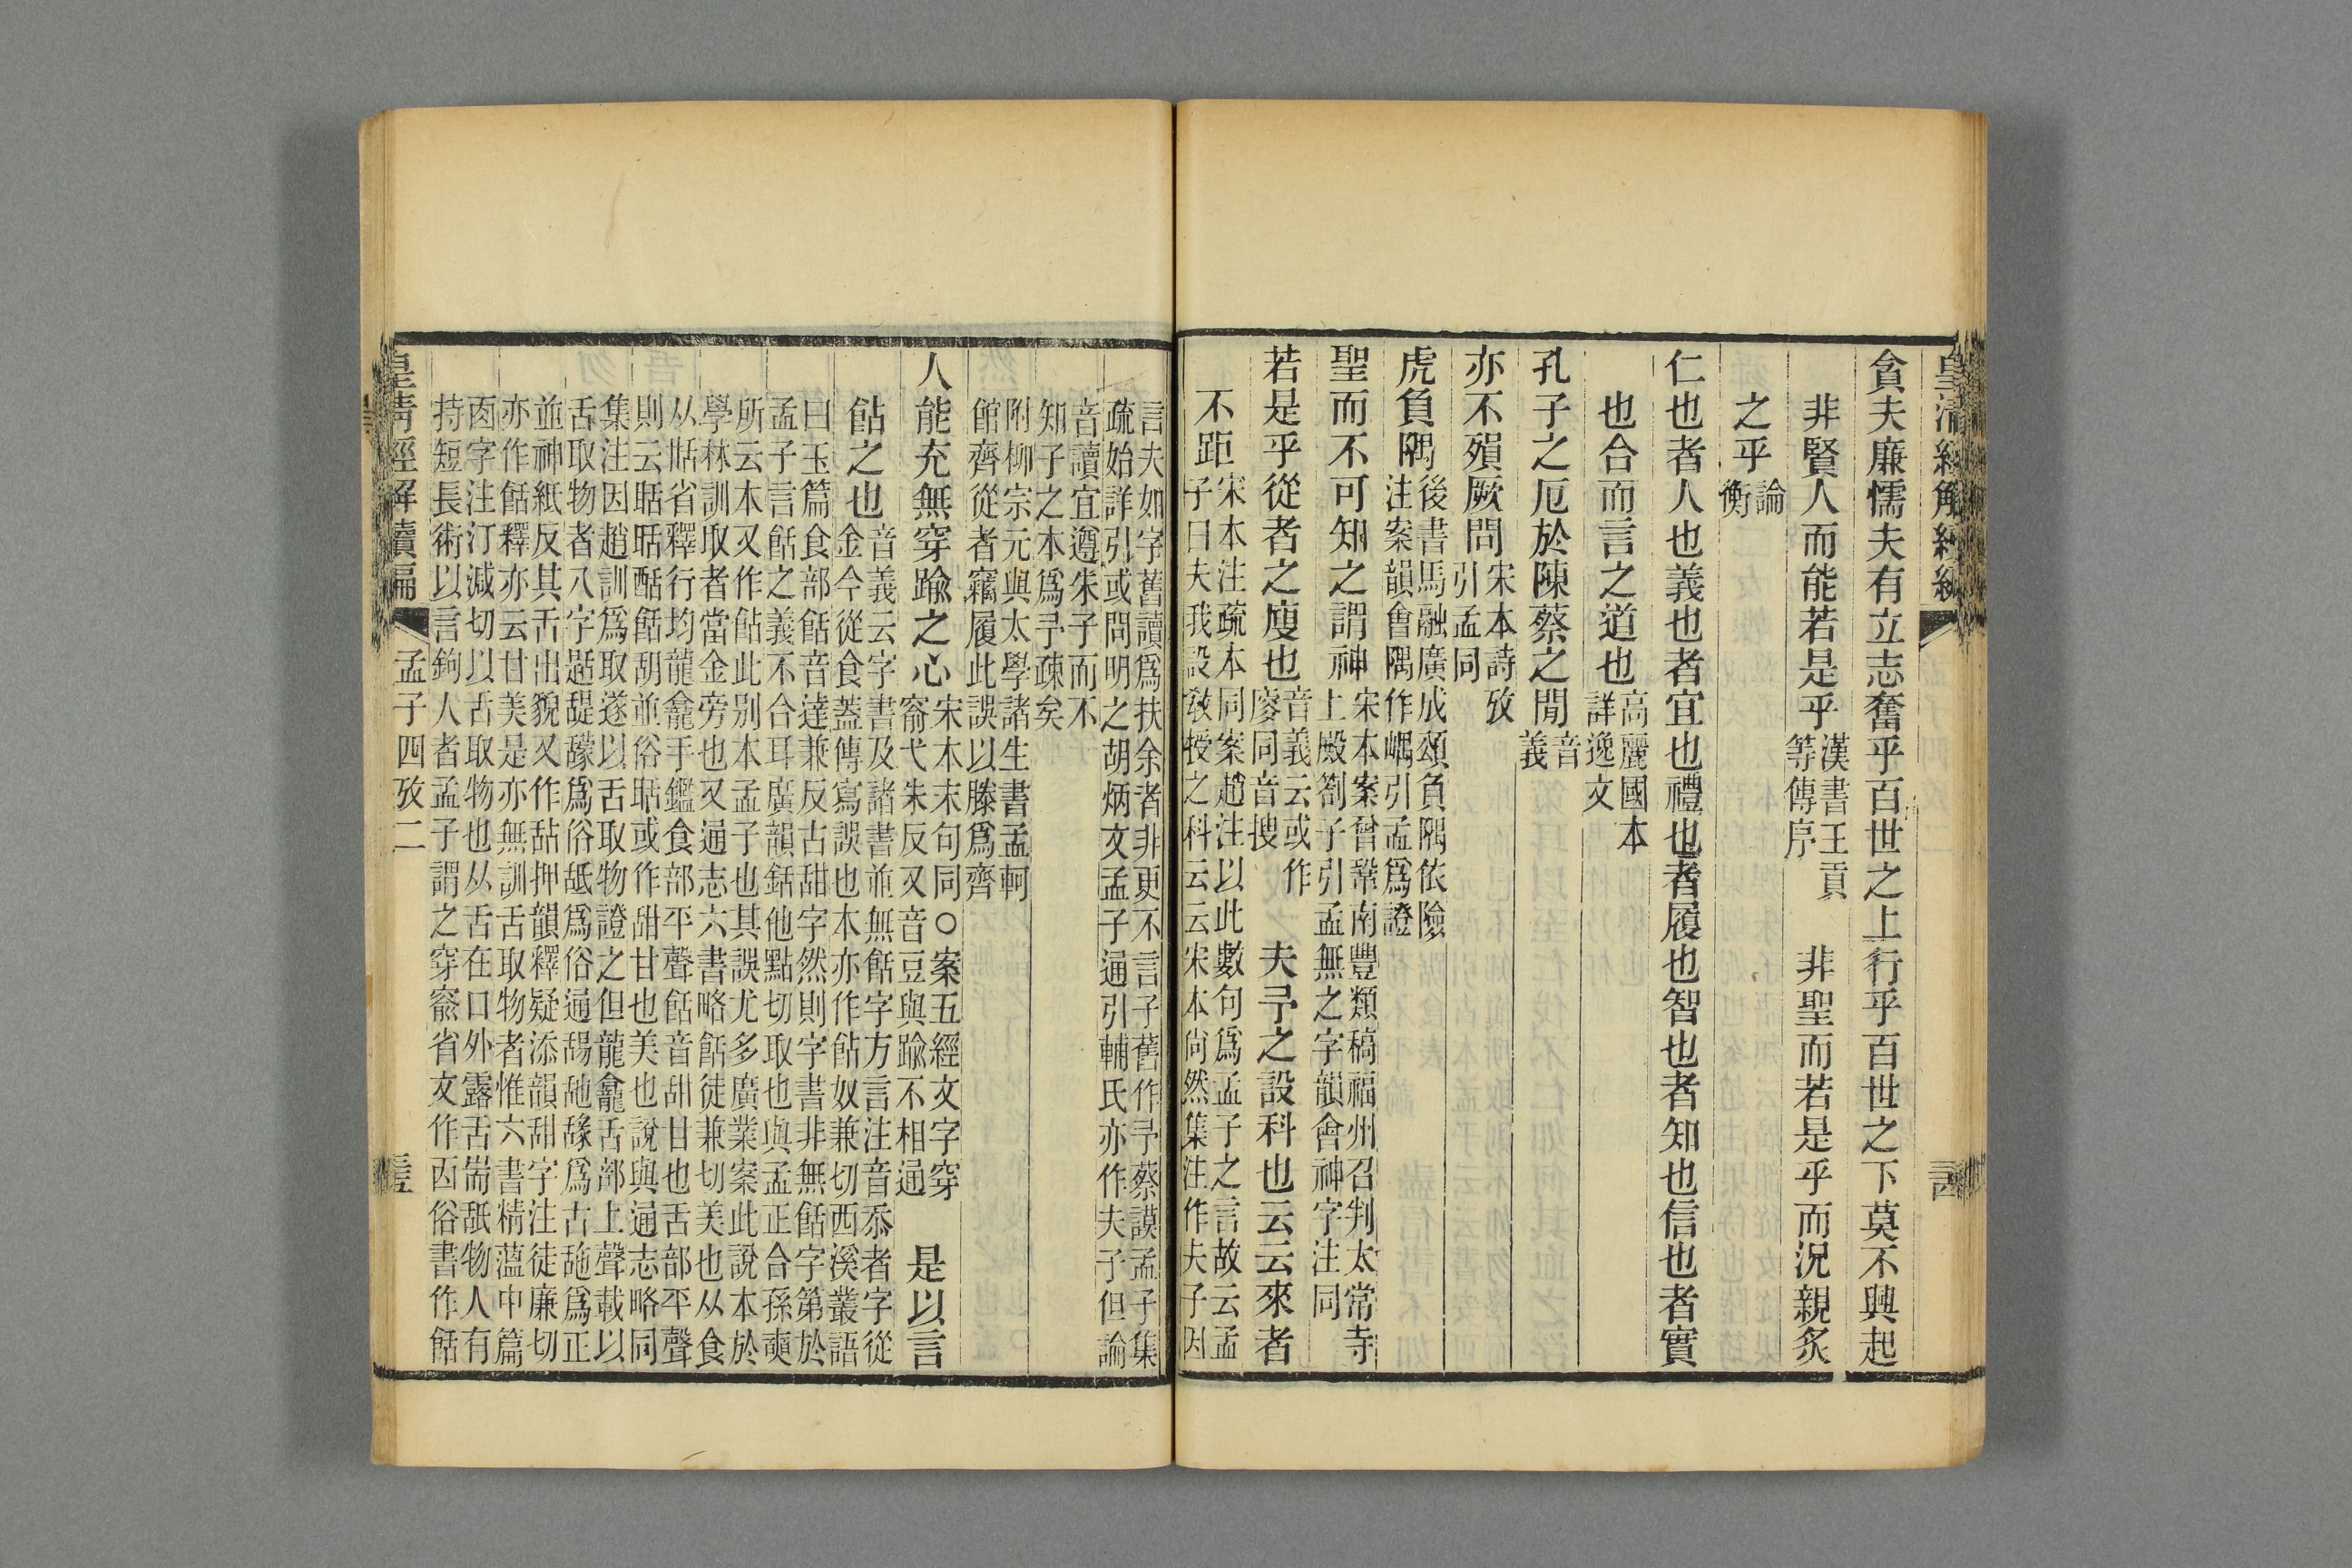 皇清經解續編
貪夫廉懦夫有立志奮乎百世之上行乎百世之下莫不興起
非賢人而能若是乎漢書王貢
等傳序
非聖而若是乎而況親炙
之乎論
衡
仁也者人也義也者宜也禮也者履也智也者知也信也者實
也合而言之道也高麗國本
詳逸文
孔子之厄於陳蔡之閒音
義
亦不殞厥問宋本詩攷
引孟同
虎負隅後書馬融廣成頌負隅依險
注案韻會隅作嵎引孟爲證
聖而不可知之謂神宋本案曾鞏南豐類稿福州召判太常寺
上殿劄子引孟無之字韻會神字注同
若是乎從者之廋也音義云或作
廖同音搜
夫予之設科也云云來者
不距宋本注疏本同案趙注以此數句爲孟子之言故云孟
子曰夫我設敎授之科云云宋本尚然集注作夫子因
言夫如字舊讀爲扶余者非更不言子舊作予蔡謨孟子集
疏始詳引或問明之胡炳文孟子通引輔氏亦作夫子但論
音讀宜遵朱子而不
知子之本爲予疎矣
附柳宗元與太學諸生書孟軻
館齊從者竊履此誤以滕爲齊
人能充無穿踰之心宋本末句同○案五經文字穿
窬弋朱反又音豆與踰不相通
是以言
餂之也音義云字書及諸書並無餂字方言注音忝者字從
金今從食蓋傳寫誤也本亦作䬯奴兼切西溪叢語
曰玉篇食部餂音達兼反古甜字然則字書非無餂字第於
孟子言餂之義不合耳廣韻銛他點切取也與孟正合孫奭
所云本又作䬯此別本孟子也其誤尤多廣業案此說本於
學林訓取者當金旁也又通志六書略餂徒兼切美也从食
从甛省釋行均龍龕手鑑食部平聲餂音甜甘也舌部平聲
則云䑙䑙酟餂胡並俗䑙或作甜甘也美也說與通志略同
集注因趙訓爲取遂以舌取物證之但龍龕舌部上聲載以
舌取物者八字爲俗爲俗通爲古爲正
並神紙反其舌出貌又作舕押韻釋疑添韻甜字注徒廉切
亦作餂釋亦云甘美是亦無訓舌取物者惟六書精蘊中篇
㐁字注汀減切以舌取物也从舌在口外露舌耑舐物人有
持短長術以言鉤人者孟子謂之穿窬省文作㐁俗書作餂
皇清經解續編
孟子四攷二